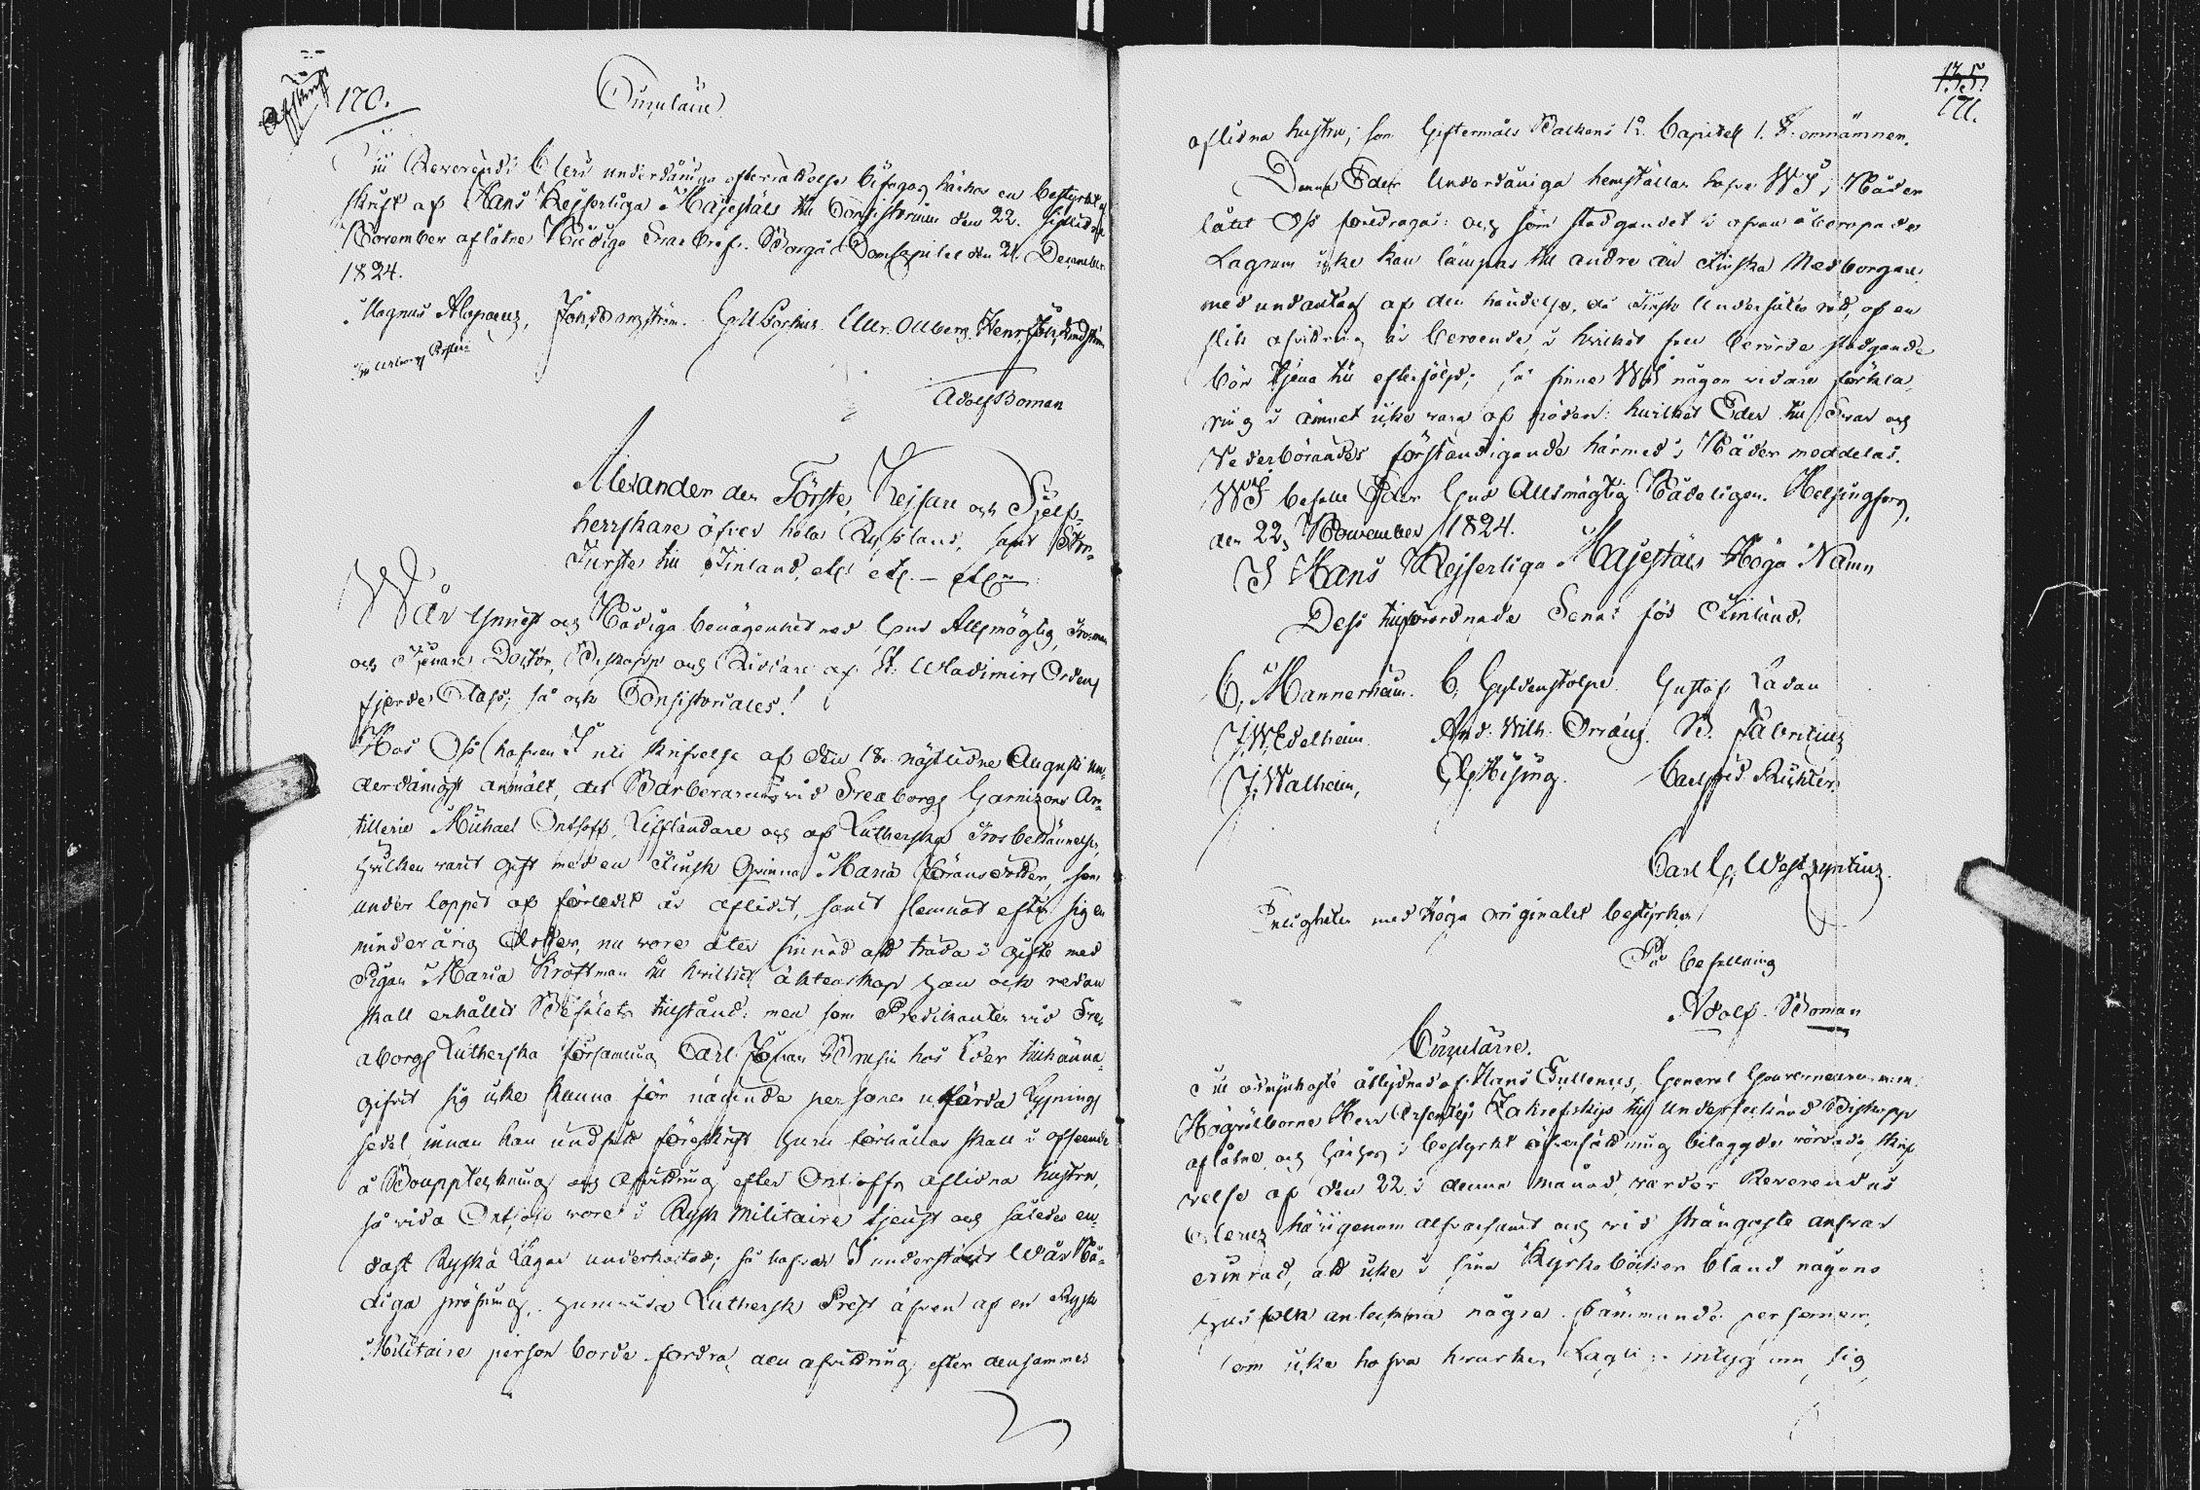 Afskrift
170.
Cirzuläire
Till Reverendi Cleri underdåniga efterrättelse bifogas härhos en bestyrkt af
skrift af Hans Kejserliga Majestäts till Consistorium den 22. sistledne
November aflåtne Nådiga Svarsbref. Borgå Domkapitel den 21. December
1824.
Magnus Alopaeus, Joh. Borgström. G. Borenius. Ulr. Ollberg. Henr. Joh.
Adolf Boman
Alexander den Förste, Kejsare och Sjelf-
herrskare öfver hela Ryssland, samt Stor-
Furste till Finland, etc. etc. – etc.
Wår ynnest och Nådiga benägenhet med Gud Allsmägtig, Troman
och Tjenare Doctor, Biskopp och Riddare af St. Wladimirs Ordens
fjerde Class; så och Consistoriales!
Hos Oss hafven I uti skrifvelse af den 18. nästledne Augusti un-
derdånigst anmält, att Barberaren vid Sveaborgs Garnizons Ar-
tillerie Michael Ontsoff, Lifländare och af Lutherska Trosbekännelsen,
hvilken varit gift med en Finsk Qvinna Maria Göransdotter, som
under loppet af förledit år aflidit, samt lemnat efter sig en
minderårig dotter, nu vore åter sinnad att träda i gifte med
Pigan Maria Kroftman till hvilket äktenskap han och redan
skall erhållit Befälets tillstånd: men som Predikanten vid Sve-
aborgs Lutherska församling Carl Johan hos Eder tillkänna-
gifvit sig icke kunna för nämnde personer utfärda Lysnings
sedel, innan han undfått föreskrift huru förhållas skall i afseende
å Bouppteckning och afvittring efter Ontsoffs aflidna hustru,
så vida Ontsoff vore i Rysk Militaire tjenst och således en-
dast Ryska Lagar underkastad; så hafven I underställt Wår Nå-
diga pröfning, huruvida Luthersk Prest äfven af en Rysk
Militaire person borde fordra den afvittring efter densammes
135.
171.
aflidna hustru, som Giftermåls Balkens 12. Capitel 1. §. omnämner.
Denna Eder Underdåniga hemställan hafve WI i Nåder
låtit Oss föredragas: och som stadgandet i ofvan åberopade
Lagrum icke kan lämpas till andre än Finska Medborgare
med undantag af den händelse, då Finsk Undersåtes rätt, af en
slik afvittring är beroende, i hvilket fall berörde stadgande
bör tjena till efterföljd; så finne WI någon vidare förkla-
ring i ämnet icke vara af nöden: hvilket Eder till Svar och
Vederbörandes förständigande härmed i Nåder meddelas.
WI befalle Eder Gud Allsmägtig Nådeligen. Helsingfors,
den 22, November 1824.
I Hans Kejserliga Majestäts Höga Namn
Dess tillförordnade Senat för Finland.
C. Mannerheim. C. Gyldenstolpe. Gustaf Ladau
J. W. Edelheim. And. Wilh. Orræus. B. Fabritius
J. Walheim, G. Hising. Carl Fred Richter.
Carl G. Westzynthius.
Enligheten med Höga originalet bestyrker
På befallning
Adolf Boman
Cirzuläire.
Till ödmjukaste åtlydnad af Hans Excellence, General Gouverneuren m.m.
Högvälborne Herr Arsentej Zakrefskijs till undertecknad Biskopp
aflåtne och härhos i bestyrkt öfversättning bilaggde vördade skrif
velse af den 22. i denna månad, warder Reverendus
Clerus härigenom alfvarsamt och vid strängaste ansvar
erinrad, att icke i sina Kyrkoböcker bland någons
husfolk anteckna några främmande personer,
som icke hafva hvarken Lagli intyg om sig,